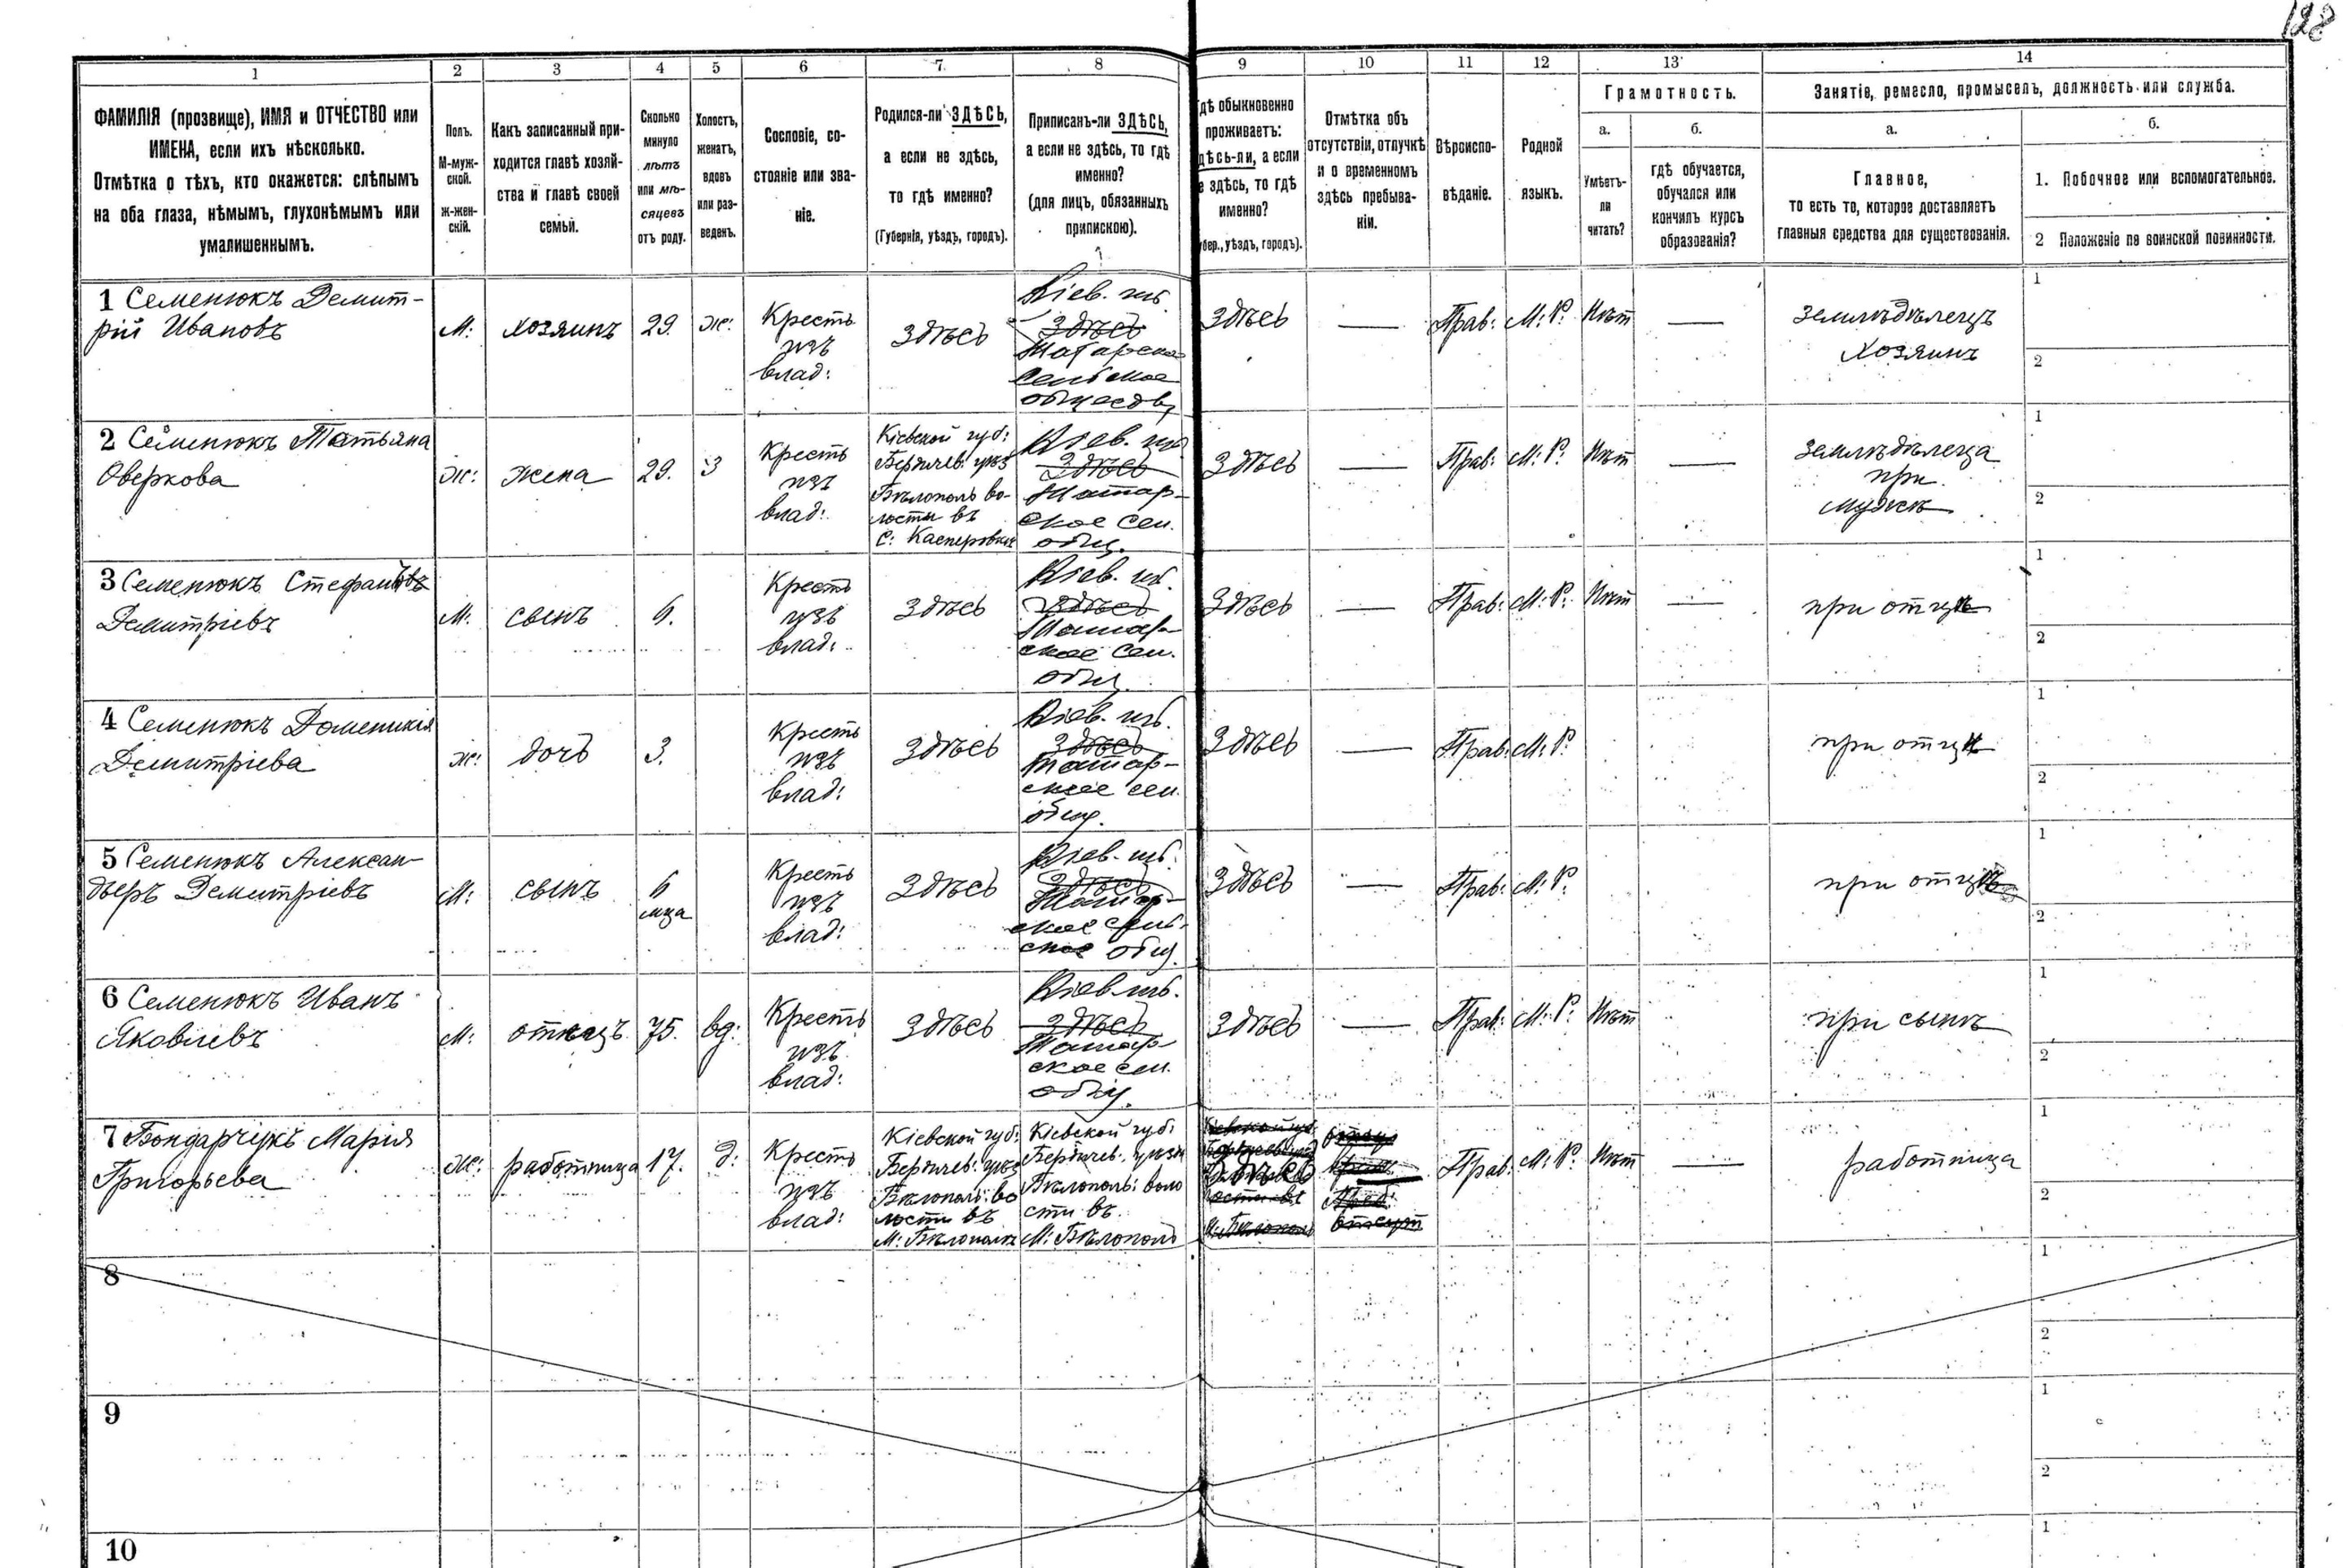 128
1
2
3
4
5
6
7
8
9
10
11
12
13
14
ФАМИЛІЯ (прозвище), ИМЯ и ОТЧЕСТВО или
ИМЕНА, если ихъ нѣсколько.
Отмѣтка о тѣхъ, кто окажется: слѣпымъ
на оба глаза, нѣмымъ, глухонѣмымъ или
умалишеннымъ.
Полъ.
М-муж-
ской.
ж-жен-
скій.
Какъ записанный при-
ходится главѣ хозяй-
ства и главѣ своей
семьи.
Сколько
минуло
лѣтъ
или мѣ-
сяцевъ
отъ роду.
Холостъ,
женатъ,
вдовъ
или раз-
веденъ.
Сословіе, со-
стояніе или зва-
ніе.
Родился-ли ЗДѢСЬ,
а если не здѣсь,
то гдѣ именно?
(Губернія, уѣздъ, городъ).
Приписанъ-ли ЗДѢСЬ,
а если не здѣсь, то гдѣ
именно?
(для лицъ, обязанныхъ
припискою).
гдѣ обыкновенно
проживаетъ:
здѣсь-ли, а если
не здѣсь, то гдѣ
именно?
(Губер., уѣздъ, городъ).
Отмѣтка объ
отсутствіи, отлучкѣ
и о временномъ
здѣсь пребыва-
ніи.
Вѣроиспо-
вѣданіе.
Родной
языкъ.
Грамотность.
а.
б.
Умѣетъ-
ли
читать?
гдѣ обучается,
обучался или
кончилъ курсъ
образованія?
Занятіе, ремесло, промыселъ, должность или служба.
а.
б.
Главное,
то есть то, которое доставляетъ
главныя средства для существованія.
1. Побочное или вспомогательное.
2 Положеніе по воинской повинности.
1 Семенюкъ Демит-
рій Ивановъ
М:
хозяинъ
29.
ж:
Кресть
изъ
влад:
Здѣсь
Кіев. губ
Здѣсь
Татарско
Сельское
общество
Здѣсь
—
Прав:
М: Р:
Нѣт
—
Земледѣлецъ
Хозяинъ
1
2
2 Семенюкъ Татьяна
Оверкова
ж:
жена
29.
З
Кресть
изъ
влад:
Кіевской губ:
Бердичев: уѣз
Бѣлополь во-
лости въ
С: Касперовки
Кіев. губ
Здѣсь
Татар-
ское сел.
общ.
Здѣсь
—
Прав:
М: Р:
Нѣт
—
Земледѣлеца
при
мужѣ
1
2
3 Семенюкъ Стефанъ
Демитріевъ
М:
сынъ
6.
Кресть
изъ
влад:
Здѣсь
Кіев. губ.
Здѣсь
Татар-
ское сел.
общ
Здѣсь
—
Прав:
М: Р:
Нѣт
—
при отцѣ
1
2
4 Семенюкъ Доменикія
Демитріева
ж:
дочь
3.
Кресть
изъ
влад:
Здѣсь
Кіев. губ.
Здѣсь
Татар-
ское сел.
общ.
Здѣсь
—
Прав:
М: Р:
при отцѣ
1
2
5 Семенюкъ Алексан-
дъеръ Демитріевъ
М:
сынъ
6
мца
Кресть
изъ
влад:
Здѣсь
Кіев. губ.
Здѣсь
Татар-
ское сель-
ское общ.
Здѣсь
—
Прав:
М: Р:
при отцѣ
1
2
6 Семенюкъ Иванъ
Яковлевъ
М:
отецъ
75.
вд:
Кресть
изъ
влад:
Здѣсь
Кіев губ.
Здѣсь
Татар
ское сел.
общ.
Здѣсь
—
Прав:
М: Р:
Нѣт
при сынѣ
1
2
7 Бондарчукъ Марія
Григорьева
ж:
работница
17.
д:
Кресть
изъ
влад:
Кіевской губ:
Бердичев: уѣз
Бѣлополь: во
лости въ
М: Бѣлополѣ
Кіевской губ:
Бердичев: уѣзд
Бѣлополь: воло
сти въ
М: Бѣлополь
Здѣсь
Прав:
М: Р:
Нѣт
—
работница
1
2
8
1
2
9
1
2
10
1